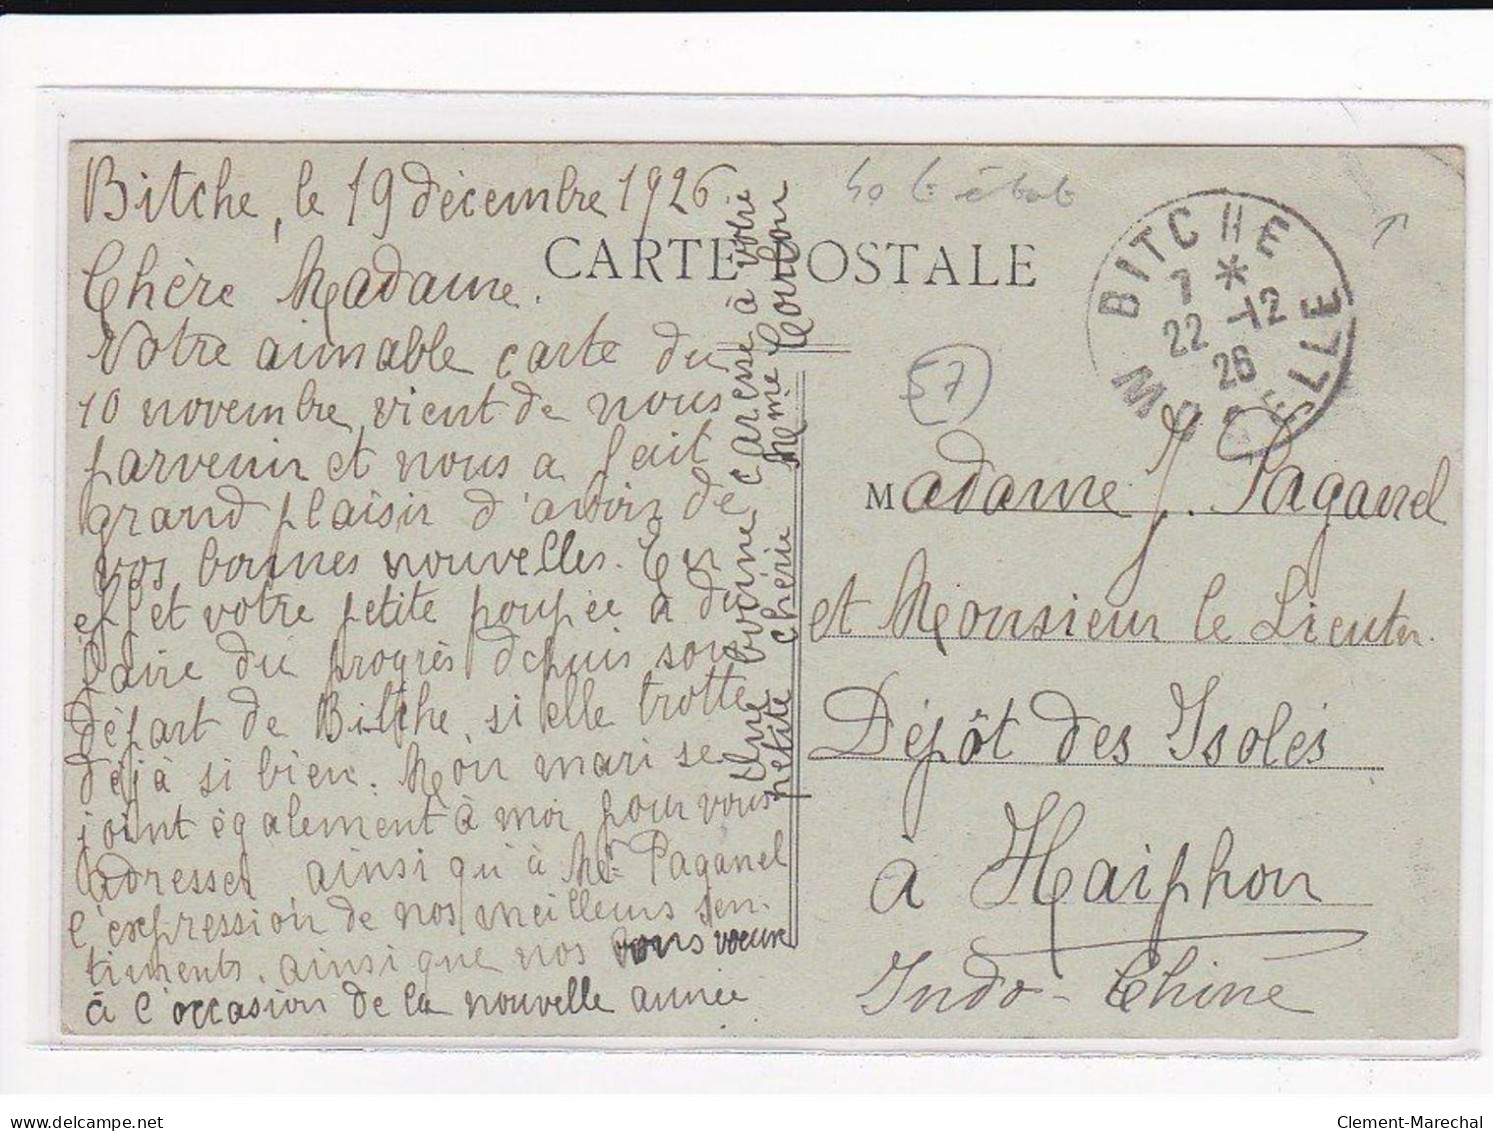 Bitche, le 19 décembre 1926
Chère Madame.
Votre aimable carte du
10 novembre, vient de nous
parvenir et nous a fait
grand plaisir d'avoir de
vos bonnes nouvelles. En
effet votre petite poupée a du
faire du progrès depuis son
départ de Bitche, si elle trotte
déjà si bien. Mon mari se
joint également à moi pour vous
adresser ainsi qu'à Mr Paganel
l'expression de nos meilleurs sen-
timents, ainsi que nos bons voeux
à l'occasion de la nouvelle année
Une bonne caresse à votre
petite chérie Mme Courbon
CARTE POSTALE
BITCHE
7 *
22 -12
26
MOSELLE
57
Madame J. Paganel
et Monsieur le Lieuten.
Dépôt des Isolés
à Haiphon
Indo-Chine
delcampe.net
Clement-Marechal